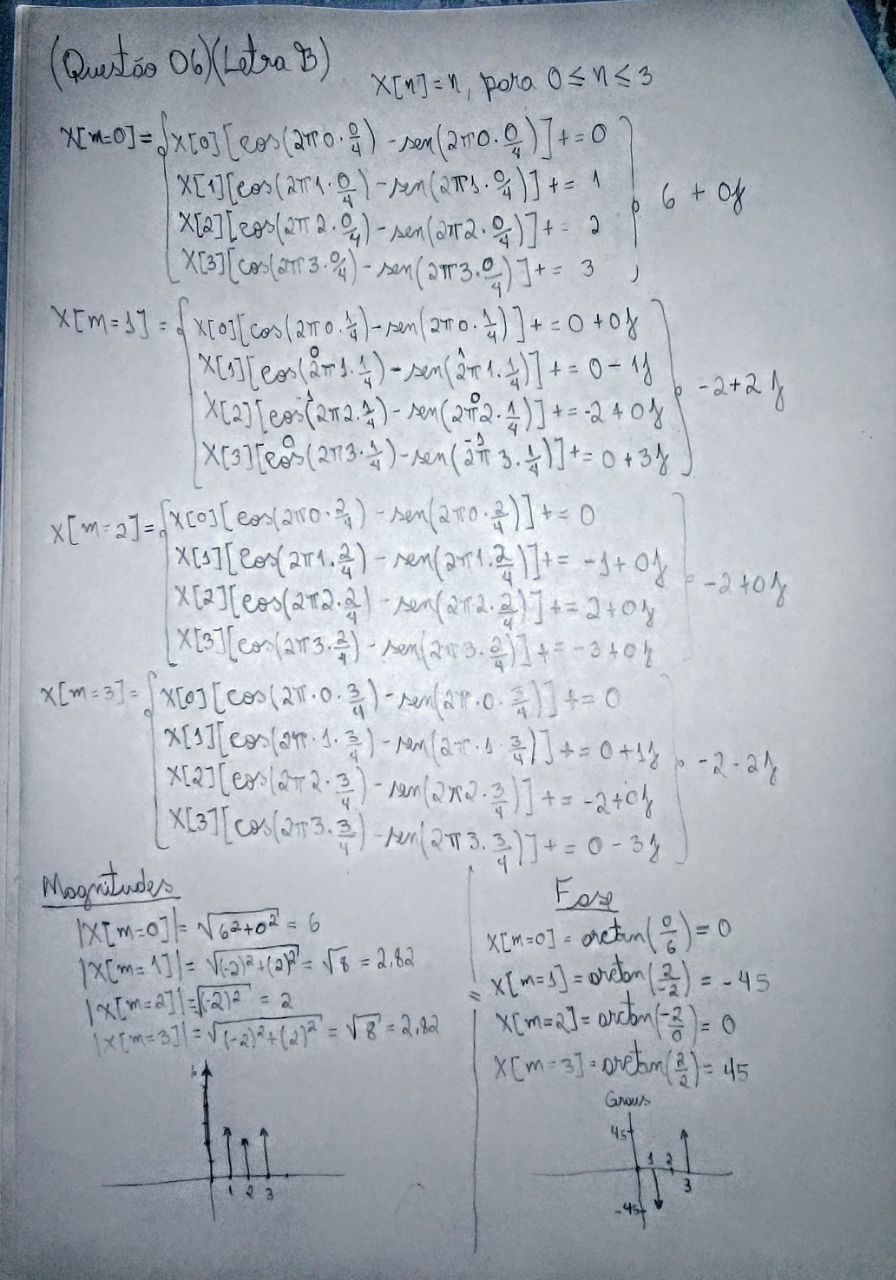 (Questão 06)(Letra B)
X[n]=n, para 0≤n≤3
X[m=0]= { X[0][cos(2π0·0/4) - sen(2π0·0/4)] += 0
X[1][cos(2π1·0/4) - sen(2π1·0/4)] += 1
X[2][cos(2π2·0/4) - sen(2π2·0/4)] += 2
X[3][cos(2π3·0/4) - sen(2π3·0/4)] += 3
} 6 + 0j
X[m=1] = { X[0][cos(2π0·1/4) - sen(2π0·1/4)] += 0 + 0j
X[1][cos(2π1·1/4) - sen(2π1·1/4)] += 0 - 1j
0 1
X[2][cos(2π2·1/4) - sen(2π2·1/4)] += -2 + 0j
-1 0
X[3][cos(2π3·1/4) - sen(2π3·1/4)] += 0 + 3j
0 -1
} -2+2j
X[m=2] = { X[0][cos(2π0·2/4) - sen(2π0·2/4)] += 0
X[1][cos(2π1·2/4) - sen(2π1·2/4)] += -1 + 0j
X[2][cos(2π2·2/4) - sen(2π2·2/4)] += 2 + 0j
X[3][cos(2π3·2/4) - sen(2π3·2/4)] += -3 + 0j
} = -2 + 0j
X[m=3] = { X[0][cos(2π·0·3/4) - sen(2π·0·3/4)] += 0
X[1][cos(2π·1·3/4) - sen(2π·1·3/4)] += 0 + 1j
X[2][cos(2π2·3/4) - sen(2π2·3/4)] += -2 + 0j
X[3][cos(2π3·3/4) - sen(2π3·3/4)] += 0 - 3j
} -2 - 2j
Magnitudes
|X[m=0]| = √(6²+0²) = 6
|X[m=1]| = √((-2)²+(2)²) = √8 = 2,82
|X[m=2]| = √((-2)²) = 2
|X[m=3]| = √((-2)²+(2)²) = √8 = 2,82
6
1 2 3
Fase
X[m=0] = arctan(0/6) = 0
X[m=1] = arctan(2/-2) = -45
X[m=2] = arctan(-2/0) = 0
X[m=3] = arctan(2/2) = 45
Graus
45
1 2 3
-45